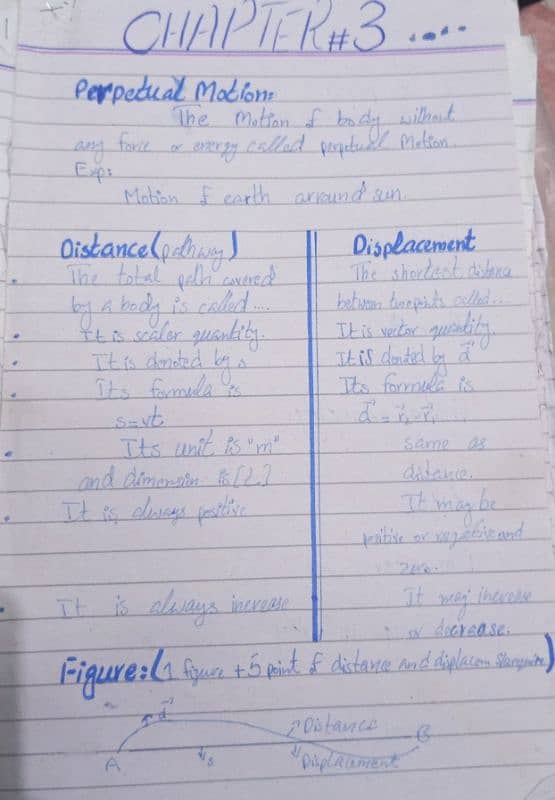 CHAPTER #3 ....
Perpetual Motion:
The Motion of body without
any force or energy called perpetual Motion.
Exp:
Motion of earth arround sun.
Distance (pathway)
The total path covered
by a body is called....
It is scaler quantity.
It is donoted by s
Its formula is
s=vt
Its unit is "m"
and dimension is [L]
It is always positive
It is always increase
Displacement
The shortest distance
between two points called...
It is vector quantity.
It is donted by d⃗
Its formula is
d⃗ = r⃗₂-r⃗₁
same as
distance.
It may be
positive or negative and
zero.
It may increase
or decrease.
Figure: (1 figure + 5 point of distance and displacem)
d⃗
Distance
B
A
s
Displacement